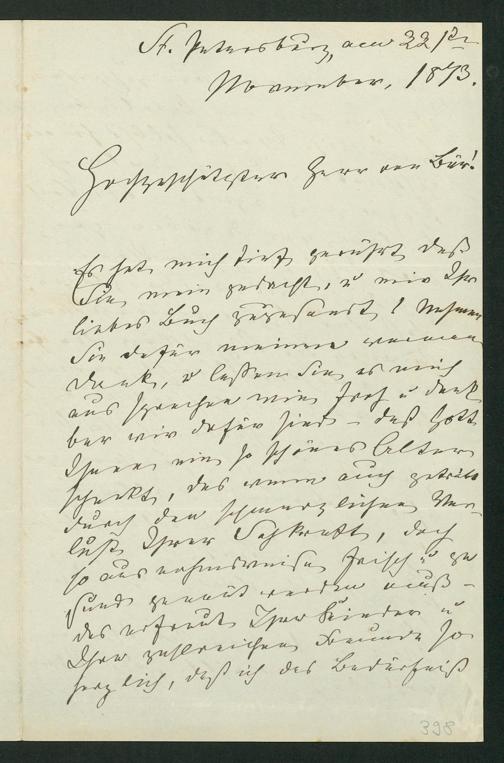 St. Petersburg, den 22sten
November, 1873.
Hochgeschätzter Herr von Bär!
Es hat mich tief gerührt daß
Sie mein gedacht, u mir Ihr
liebes Buch zugesandt! Nehmen
Sie dafür meinen warmen
Dank, u lassen Sie es mich
aus sprechen wie froh u dank
bar wir dafür sind – daß Gott
Ihnen ein so schönes Alter
schenkt, das wenn auch getrübt
durch den schmerzlichen Ver-
lust Ihrer Sehkraft, doch
so ausnahmsweise frisch u ge
sund genannt werden muß –
das erfreut Ihre Kinder u
Ihre zahlreichen Freunde so
herzlich, daß ich das Bedürfniß
398